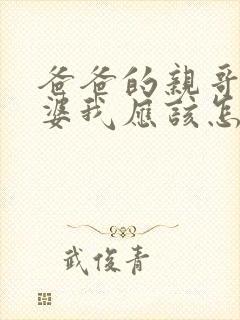 爸爸的親哥
婆我應該怎
武俊青